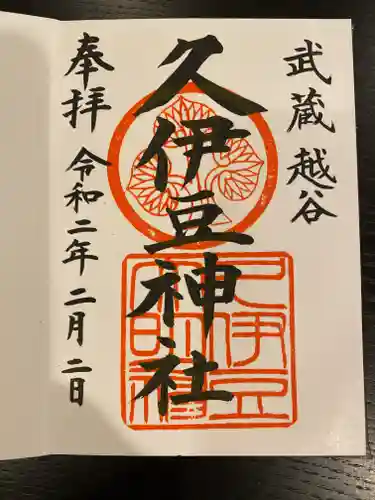 武蔵越谷
久伊豆神社
奉拝
令和二年二月二日
久伊豆